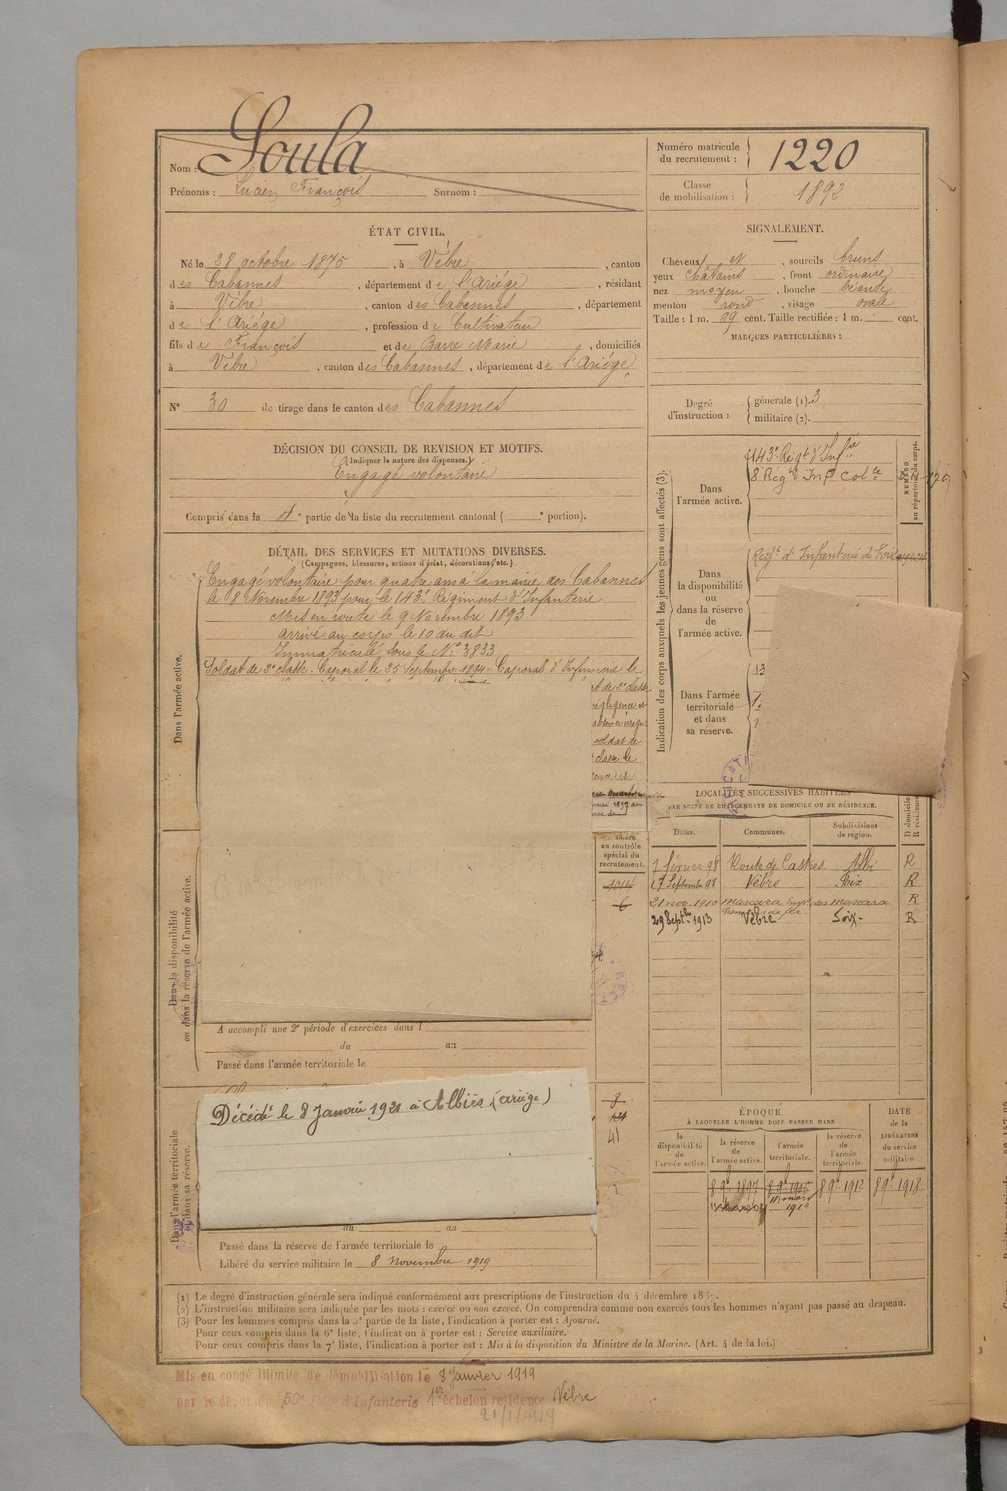 Nom : Soula
Prénoms : Lucien François Surnom :
Numéro matricule du recrutement : 1220
Classe de mobilisation : 1892
ÉTAT CIVIL.
Né le 28 octobre 1875, à Vèbre, canton
des Cabannes, département de l'Ariège, résidant
à Vèbre, canton des Cabannes, département
de l'Ariège, profession de Cultivateur
fils de François et de Barre Marie, domiciliés
à Vèbre, canton des Cabannes, département de l'Ariège
N° 30 de tirage dans le canton des Cabannes
SIGNALEMENT.
Cheveux et, sourcils bruns
yeux châtains, front ordinaire
nez moyen, bouche béante
menton rond, visage ovale
Taille : 1 m. 69 cent. Taille rectifiée : 1 m. cent.
MARQUES PARTICULIÈRES :
Degré d'instruction : générale (1). 3
militaire (2).
DÉCISION DU CONSEIL DE REVISION ET MOTIFS.
(Indiquer la nature des dispenses.)
Engagé volontaire
Compris dans la 4e partie de la liste du recrutement cantonal ( e portion).
DÉTAIL DES SERVICES ET MUTATIONS DIVERSES.
(Campagnes, blessures, actions d'éclat, décorations, etc.)
Dans l'armée active.
Engagé volontaire pour quatre ans à la mairie des Cabannes
le 08 Novembre 1893 pour le 143e Régiment d'Infanterie
Mis en route le 9 Novembre 1893
arrivé au corps le 10 du dit
Immatriculé sous le N° 3833
Soldat de 2e classe. Caporal le 25 Septembre 1894. Caporal d'Infirmerie le
Indication des corps auxquels les jeunes gens sont affectés (3).
NUMÉRO au répertoire du corps.
Dans l'armée active.
143e Régt d'Infie
8 Régt Infie Colle
Dans la disponibilité ou dans la réserve de l'armée active.
Régt d'Infanterie de Foix
Dans l'armée territoriale et dans sa réserve.
13
LOCALITÉS SUCCESSIVES HABITÉES
PAR SUITE DE CHANGEMENTS DE DOMICILE OU DE RÉSIDENCE.
Dates. Communes. Subdivisions de région. D domicile R résidence
7 février 98 Route de Castres Albi R
17 Septembre 98 Vèbre Foix R
21 nov. 1910 Mascara Mascara R
29 Septbre 1913 Vèbre Foix R
au contrôle spécial du recrutement.
Dans la disponibilité ou dans la réserve de l'armée active.
A accompli une 2e période d'exercices dans l
du au
Passé dans l'armée territoriale le
Dans l'armée territoriale et dans sa réserve.
Décédé le 8 Janvier 1921 à Albiès (ariège)
41
du au
Passé dans la réserve de l'armée territoriale le
Libéré du service militaire le 8 novembre 1919
ÉPOQUE
À LAQUELLE L'HOMME DOIT PASSER DANS
la disponibilité de l'armée active. la réserve de l'armée active. l'armée territoriale. la réserve de l'armée territoriale.
DATE de la LIBÉRATION du service militaire.
8 9bre 1897 8 9bre 1912 8 9bre 1918
(1) Le degré d'instruction générale sera indiqué conformément aux prescriptions de l'instruction du 4 décembre 1889.
(2) L'instruction militaire sera indiquée par les mots : exercé ou non exercé. On comprendra comme non exercés tous les hommes n'ayant pas passé au drapeau.
(3) Pour les hommes compris dans la 5e partie de la liste, l'indication à porter est : Ajourné.
Pour ceux compris dans la 6e liste, l'indication à porter est : Service auxiliaire.
Pour ceux compris dans la 7e liste, l'indication à porter est : Mis à la disposition du Ministre de la Marine. (Art. 4 de la loi.)
Mis en congé illimité de démobilisation le 8 Janvier 1919
par le dépôt du 59e Rég. d'Infanterie 1er échelon résidence Vèbre
21/1/1919